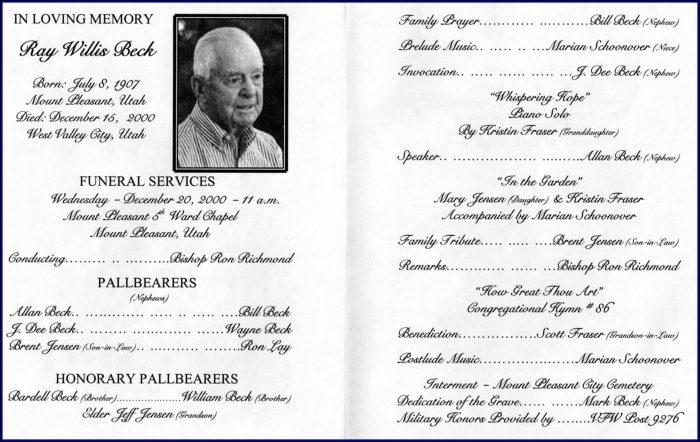 IN LOVING MEMORY
Ray Willis Beck
Born: July 8, 1907
Mount Pleasant, Utah
Died: December 15, 2000
West Valley City, Utah
FUNERAL SERVICES
Wednesday – December 20, 2000 – 11 a.m.
Mount Pleasant 5th Ward Chapel
Mount Pleasant, Utah
Conducting......... .. ... ..........Bishop Ron Richmond
PALLBEARERS
(Nephews)
Allan Beck.. ............ ..... .. .. ..... ....Bill Beck
J. Dee Beck.. ........... .. ..... .......Wayne Beck
Brent Jensen (Son-in-Law).. .. ..... .. ........ Ron Lay
HONORARY PALLBEARERS
Bardell Beck (Brother)......................William Beck (Brother)
Elder Jeff Jensen (Grandson)
Family Prayer..... ... .......... .......Bill Beck (Nephew)
Prelude Music.. .. ..... .. ....Marian Schoonover (Niece)
Invocation.. ..... ...... ..... ... ...J. Dee Beck (Nephew)
"Whispering Hope"
Piano Solo
By Kristin Fraser (Granddaughter)
Speaker.. .. ..................... .......Allan Beck (Nephew)
"In the Garden"
Mary Jensen (Daughter) & Kristin Fraser
Accompanied by Marian Schoonover
Family Tribute..... ..... .... ......Brent Jensen (Son-in-Law)
Remarks............. .... ...... ...Bishop Ron Richmond
"How Great Thou Art"
Congregational Hymn # 86
Benediction.......................Scott Fraser (Grandson-in-Law)
Postlude Music......................Marian Schoonover
Interment – Mount Pleasant City Cemetery
Dedication of the Grave...... ......Mark Beck (Nephew)
Military Honors Provided by ........VFW Post 9276